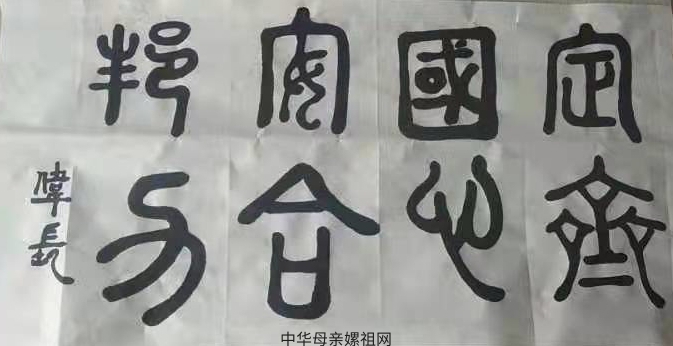 定國安邦
齊心合力
偉長
中华母亲嫘祖网